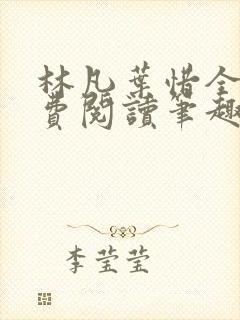 林凡葉惜全
費閱讀筆趣
李莹莹